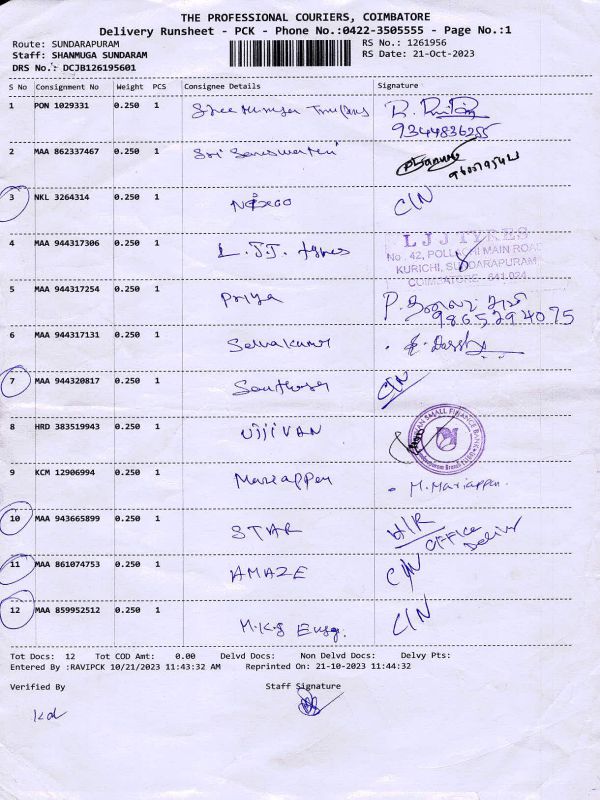 THE PROFESSIONAL COURIERS, COIMBATORE
Delivery Runsheet - PCK - Phone No.:0422-3505555 - Page No.:1
Route: SUNDARAPURAM RS No.: 1261956
Staff: SHANMUGA SUNDARAM RS Date: 21-Oct-2023
DRS No.: DCJB126195601
S No Consignment No Weight PCS Consignee Details Signature
1 PON 1029331 0.250 1 Shree
9344836255
2 MAA 862337467 0.250 1 Sri
3 NKL 3264314 0.250 1 C/N
4 MAA 944317306 0.250 1 L.JJ. LJJ TYRES
No. 42, POLLACHI MAIN ROAD
KURICHI, SUNDARAPURAM
COIMBATORE - 641 024.
5 MAA 944317254 0.250 1 Priya
9865294075
6 MAA 944317131 0.250 1 Selvakumar
7 MAA 944320817 0.250 1 C/N
8 HRD 383519943 0.250 1 UJJIVAN SMALL FINANCE BANK
9 KCM 12906994 0.250 1 Mariappen M. Mariappen.
10 MAA 943665899 0.250 1 STAR
OFFICE
11 MAA 861074753 0.250 1 AMAZE C/N
12 MAA 859952512 0.250 1 M.K.S Engg. C/N
Tot Docs: 12 Tot COD Amt: 0.00 Delvd Docs: Non Delvd Docs: Delvy Pts:
Entered By :RAVIPCK 10/21/2023 11:43:32 AM Reprinted On: 21-10-2023 11:44:32
Verified By Staff Signature